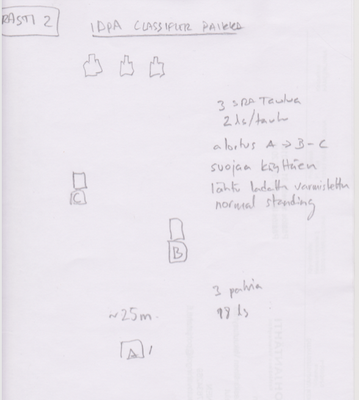 RASTI 2
IDPA CLASSIFIER PAIKKA
3 SRA Taulua
2 ls/taulu
aloitus A → B - C
suojaa käyttäen
lähtö ladattu varmistettu
normal standing
C
B
3 paikkaa
~25m.
18 ls
A